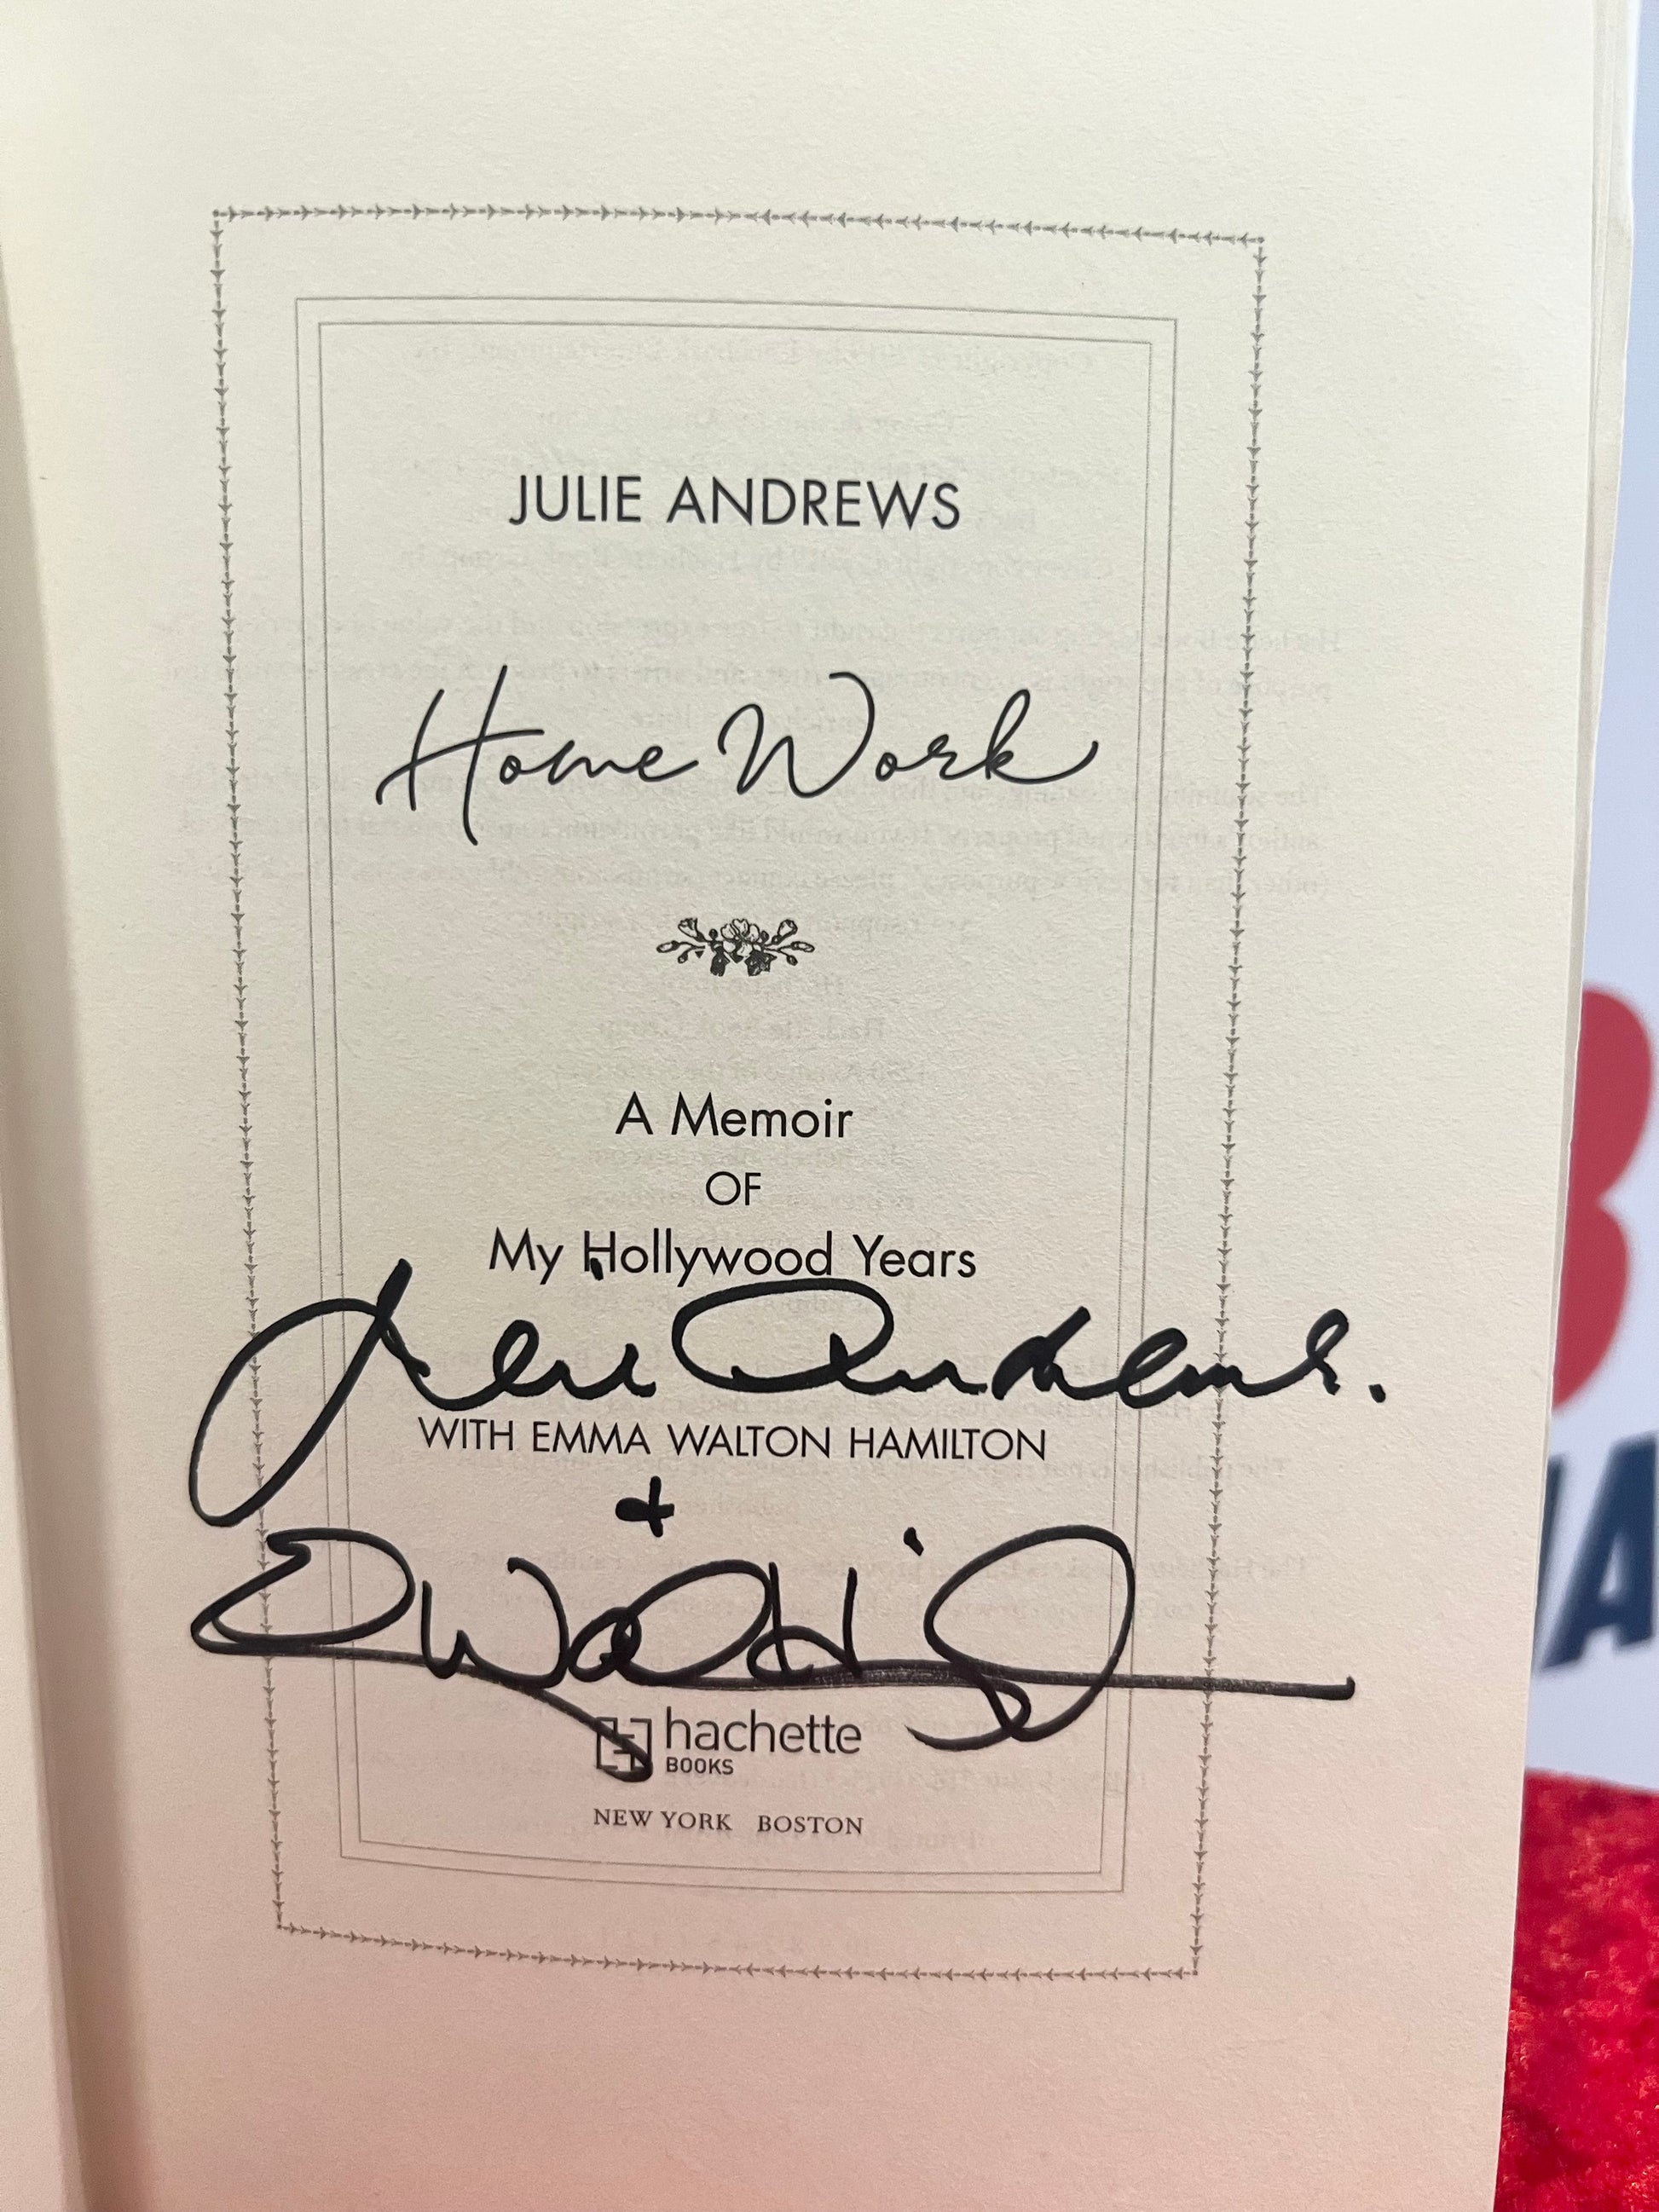 JULIE ANDREWS
Home Work
A Memoir
OF
My Hollywood Years
Julie Andrews.
WITH EMMA WALTON HAMILTON
+
hachette
BOOKS
NEW YORK BOSTON